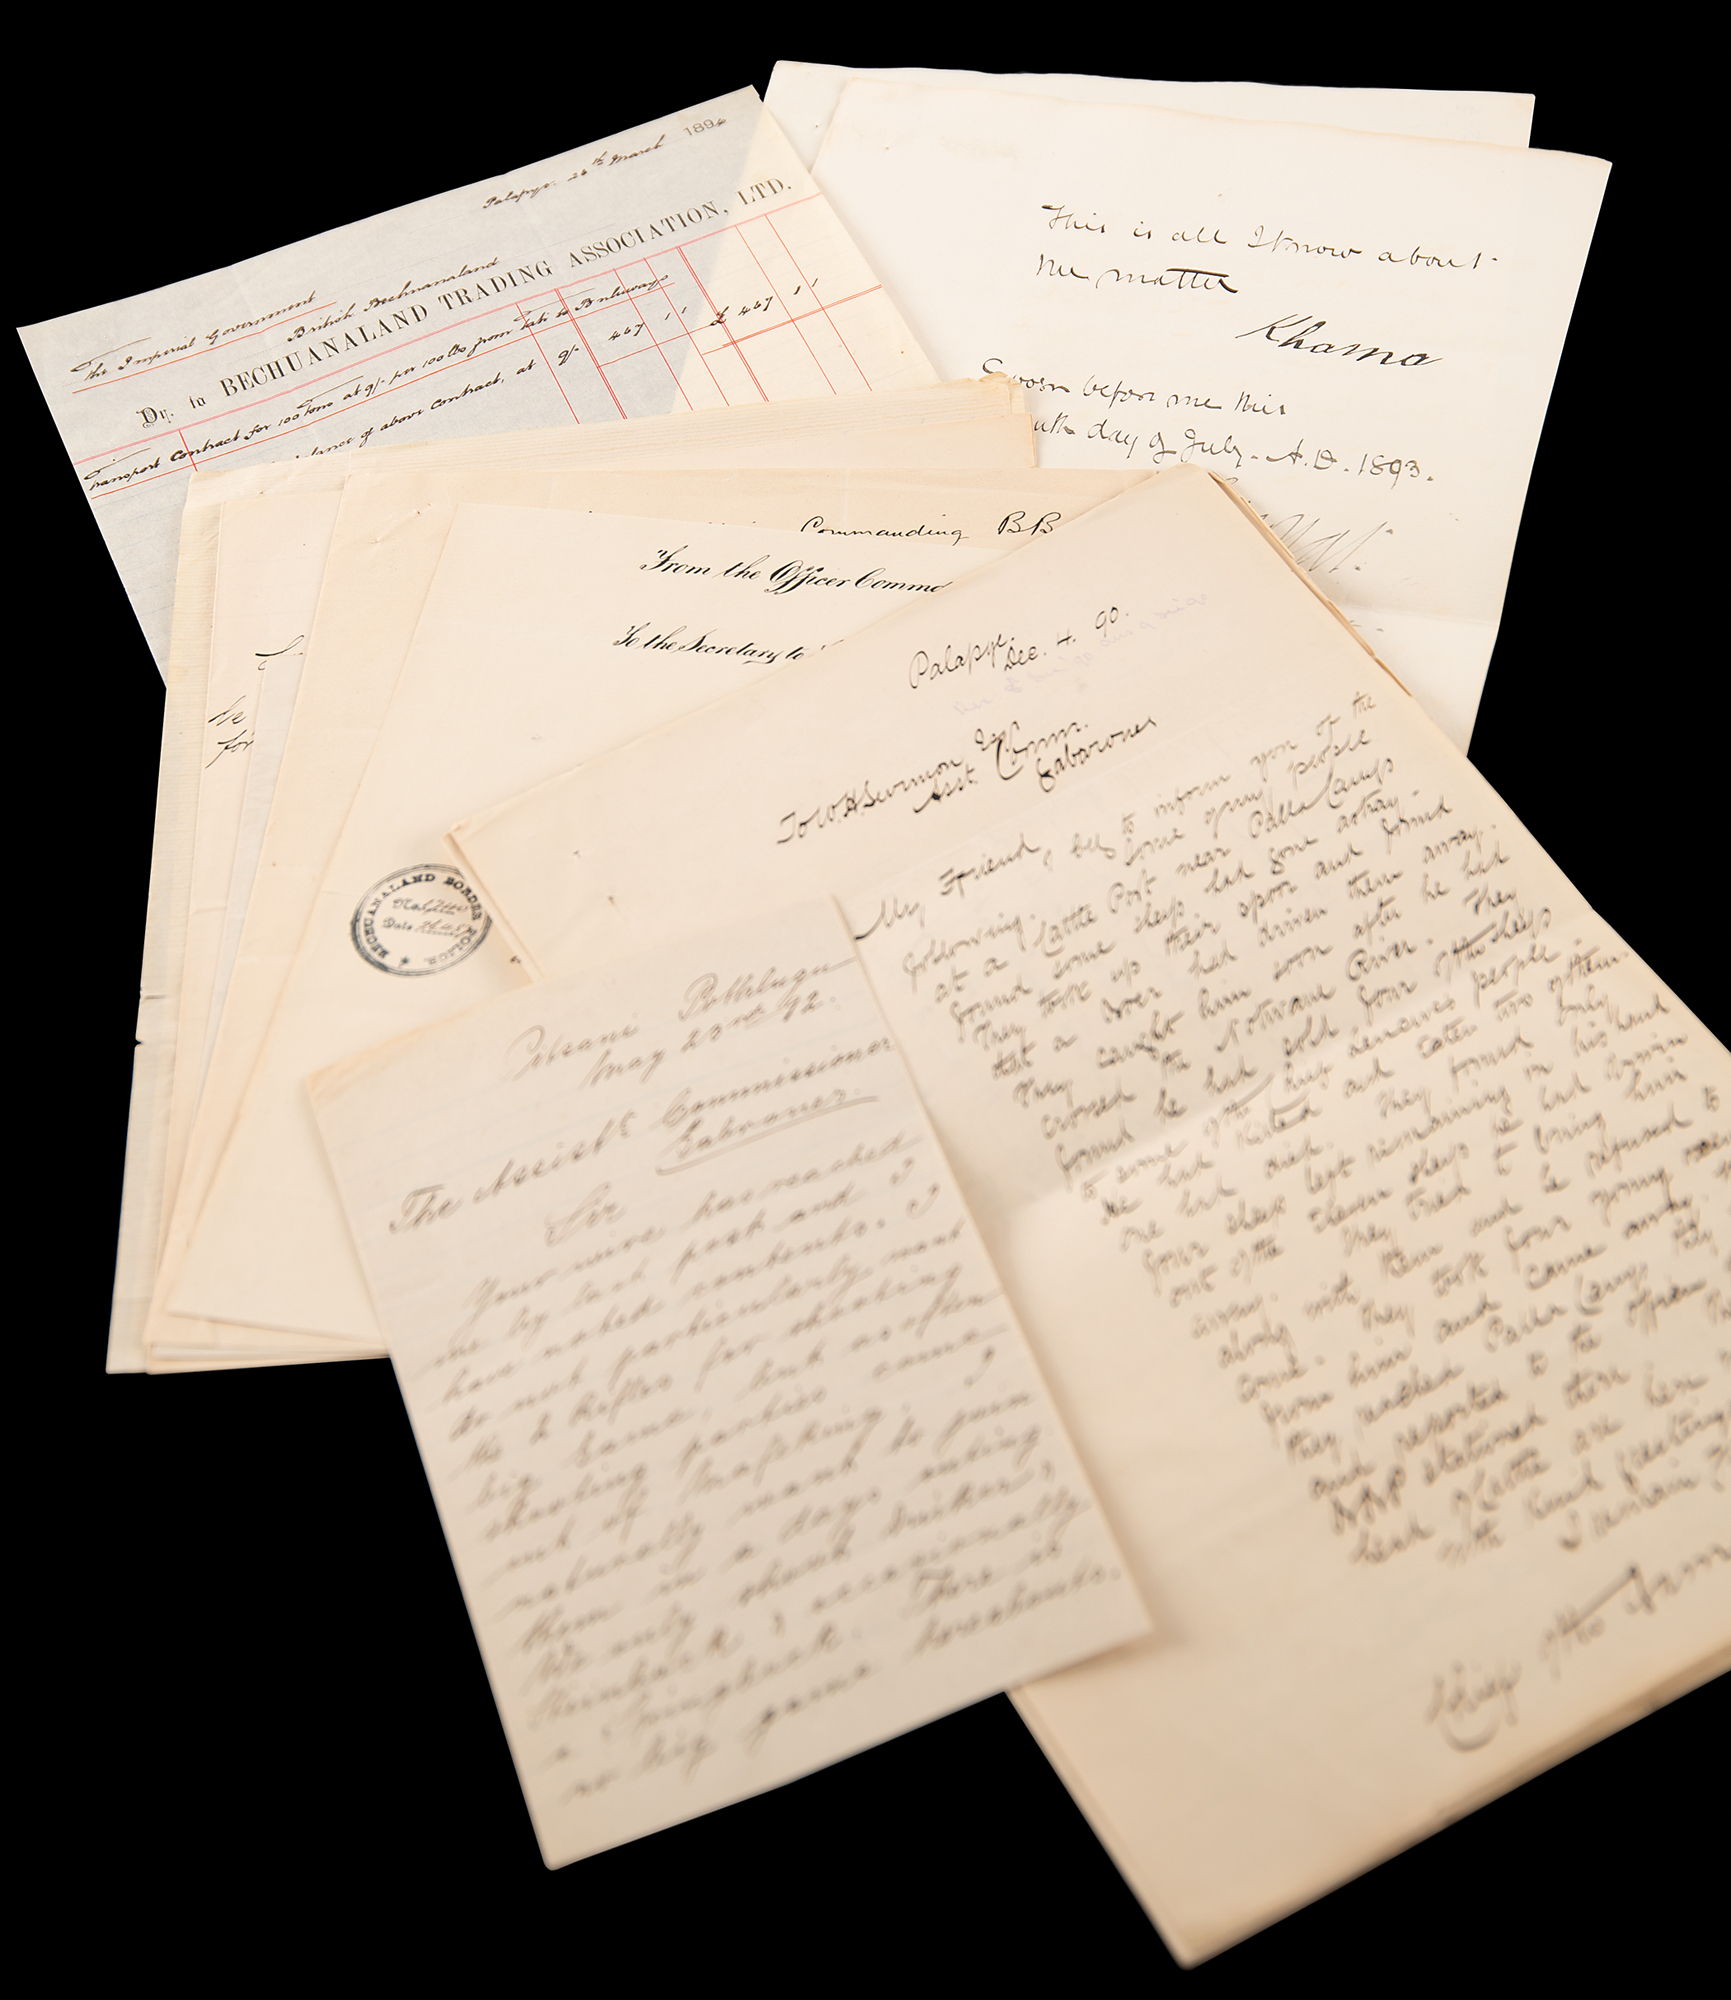 Palapye. 26th March 1894
The Imperial Government
British Bechuanaland
Dr. to BECHUANALAND TRADING ASSOCIATION, LTD.
Transport Contract for 100 Tons at 9/- per 100 lbs from Tati to Buluwayo
balance of above contract, at 9/- 467 11 £ 467 11
This is all I know about
the matter
Khama
Sworn before me this
day of July. A.D. 1893.
Commanding BB
From the Officer Comma
To the Secretary to
he
for
BECHUANALAND BORDER POLICE.
Date
Palapye.
Dec. 4. 90.
To W.H. Surmon Esq
Asst. Comm.
Gaberones
My Friend, I beg to inform you of the
following. Some of my people
at a Cattle Post near Palla Camp
found some sheep had gone astray.
They took up their spoor and found
that a Boer had driven them away.
They caught him soon after he had
crossed the Notwane River. They
found he had sold four of the sheep
to some of the people.
He had killed and eaten two of them.
one had died. They found only
four sheep left remaining in his hand
out of the eleven sheep he had driven
away. They tried to bring him
along with them and he refused to
come. They took four young
from him and came away.
they reached Palla Camp they
and reported to the officer
BBP stationed there
head of cattle are here
with kind greetings
I remain
Chief of the
Pitsani Potlhugu
May 23rd 92.
The Assist. Commissioner
Gabrones.
Sir
Your wire has reached
me by last post and I
have noted contents. I
do not particularly want
the 2 Rifles for shooting
big Game, but as often
shooting parties came
out of Mafeking I
naturally want to join
them in a days outing
We only shoot Duiker,
Steinbuck & occasionally
a Springbuck. There is
no big game hereabouts.